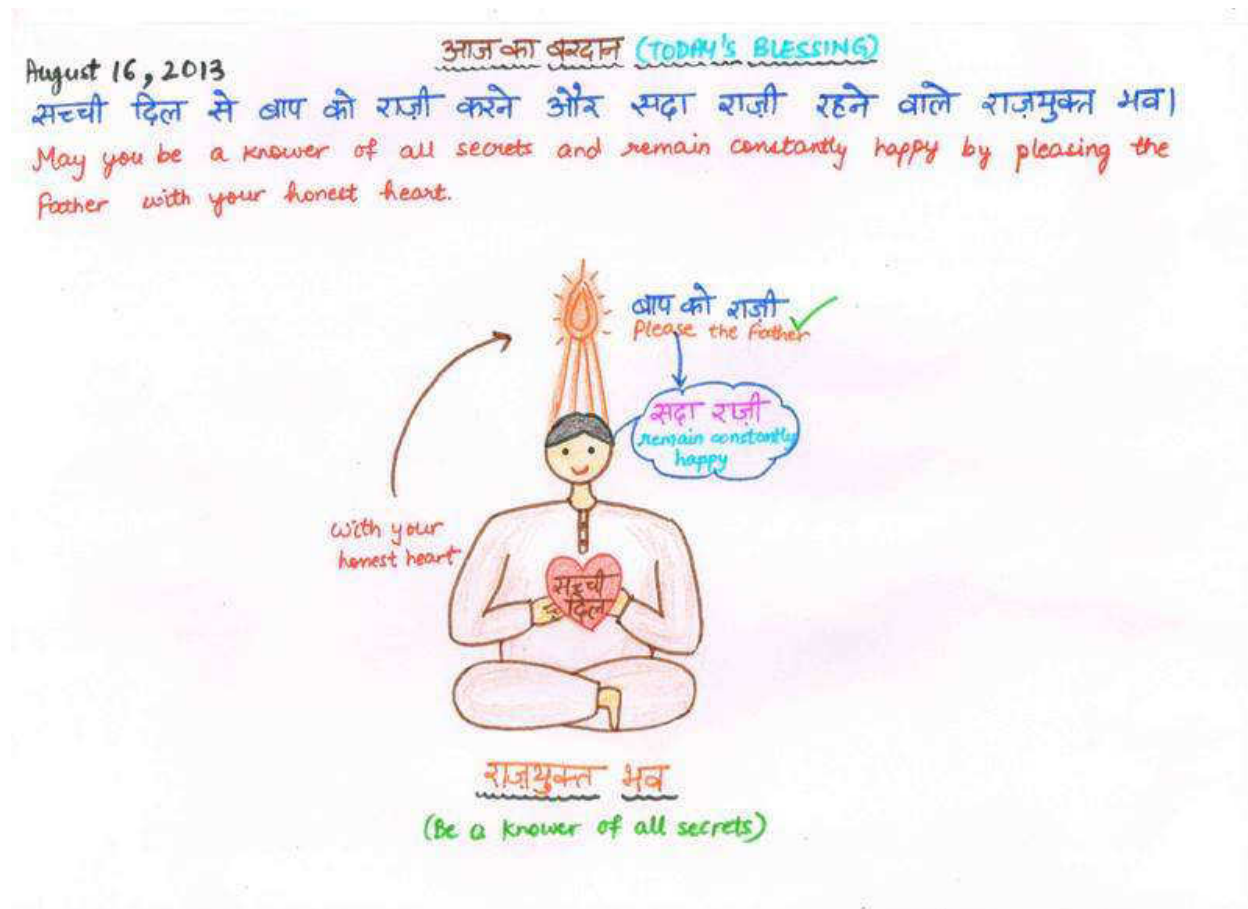 आज का वरदान (TODAY'S BLESSING)
August 16, 2013
सच्ची दिल से बाप को राज़ी करने और सदा राज़ी रहने वाले राज़युक्त भव।
May you be a knower of all secrets and remain constantly happy by pleasing the
Father with your honest heart.
बाप को राज़ी
Please the Father
सदा राज़ी
remain constantly
happy
with your
honest heart
सच्ची
दिल
राज़युक्त भव
(Be a knower of all secrets)